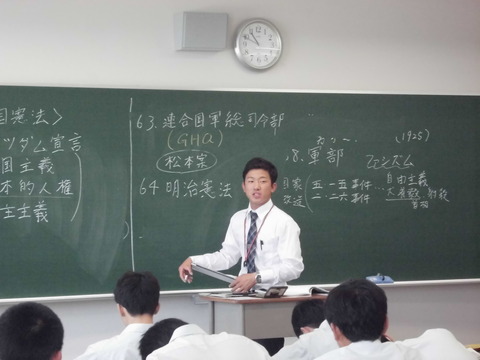 国憲法>
ツダム宣言
国主義
本的人権
主主義
63. 連合国軍総司令部
(GHQ)
松本案
64 明治憲法
(1925)
8. 軍部 ファシズム
五・一五事件
二・二六事件
自由主義